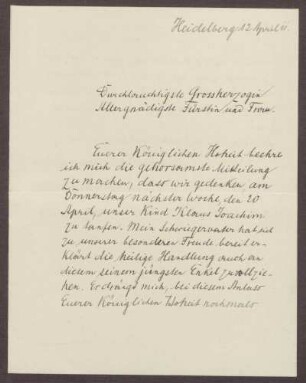 Heidelberg 12 April 11.
Durchlauchtigste Grossherzogin
Allergnädigste Fürstin und Frau.
Euerer Königlichen Hoheit beehre
ich mich die gehorsamste Mitteilung
zu machen, dass wir gedenken am
Donnerstag nächster Woche, den 20
April, unser Kind Klaus Joachim
zu taufen. Mein Schwiegervater hat sich
zu unserer besonderen Freude bereit er-
klärt die heilige Handlung auch an
diesem seinem jüngsten Enkel zu vollzie-
hen. Es drängt mich, bei diesem Anlass
Euerer Königlichen Hoheit nochmals